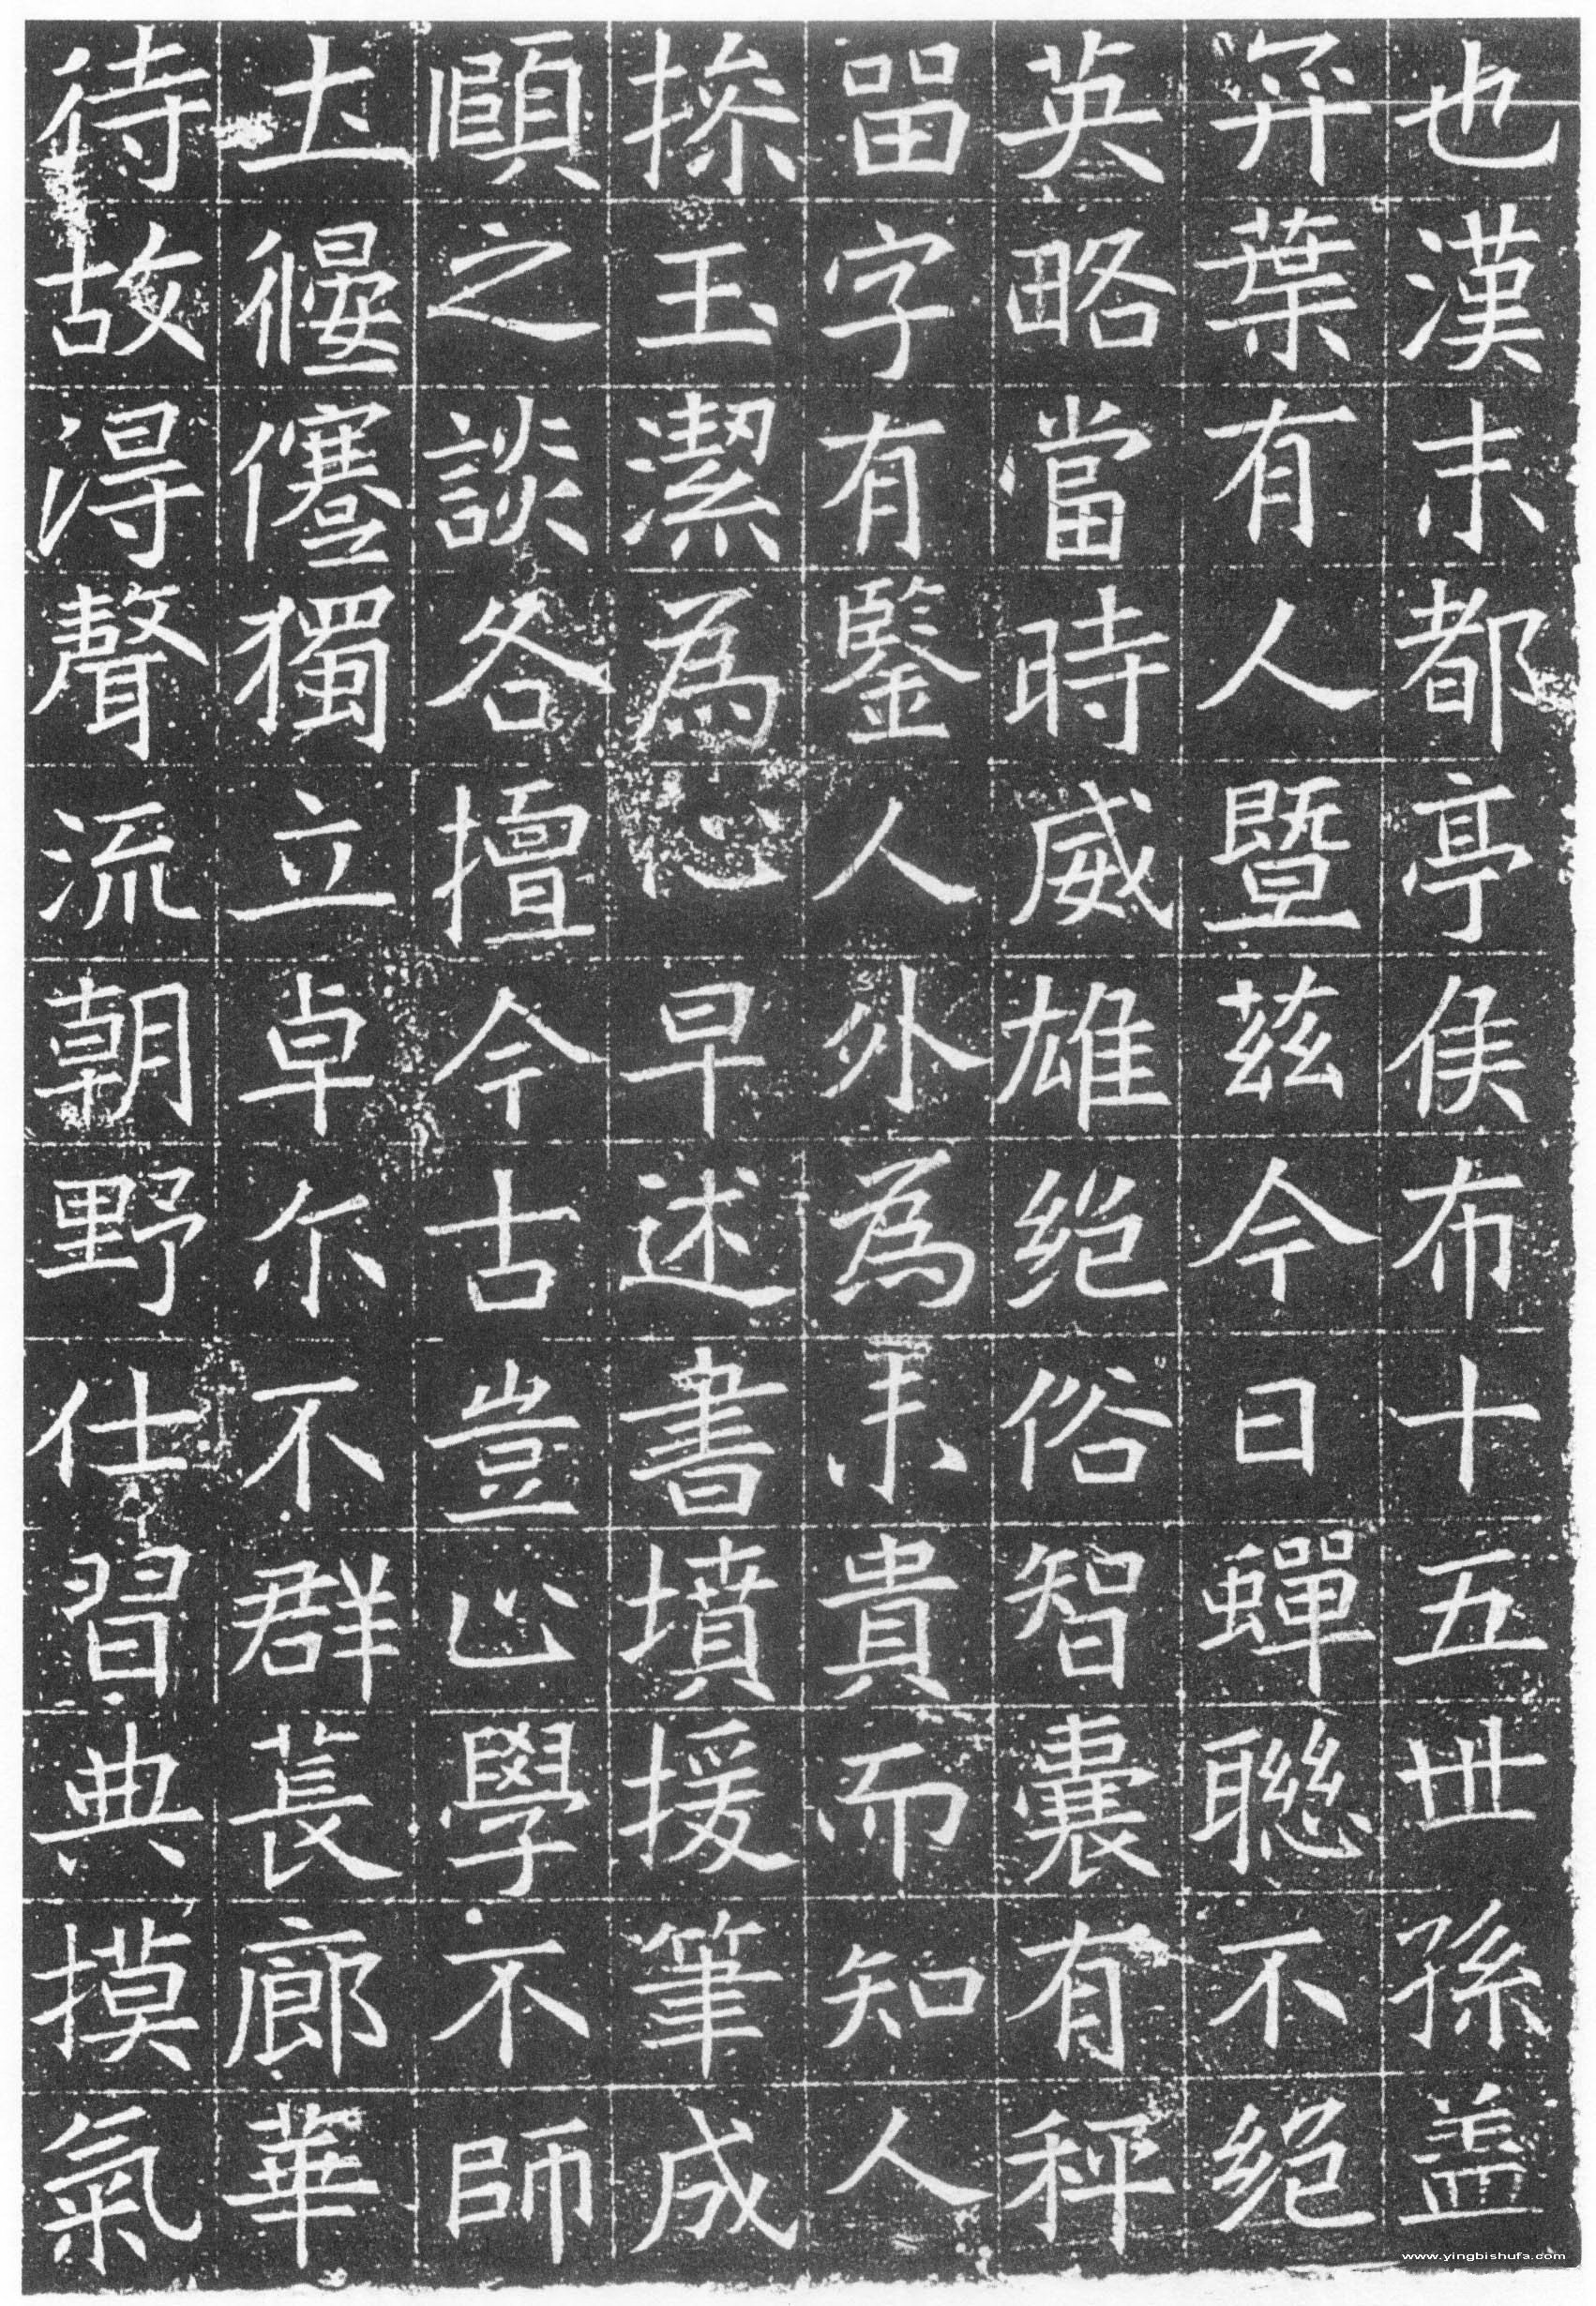 也漢末都亭侯布十五世孫盖
弈葉有人暨茲今日蟬聯不絕
英略當時威雄絕俗智囊有秤
留字有鑒人外為未貴而知人
摻玉潔為心早述書墳援筆成
顧之談各擅今古豈止學不師
士偃蹇獨立卓尔不群萇廊華
待故得聲流朝野仕習典摸氣
www.yingbishufa.com